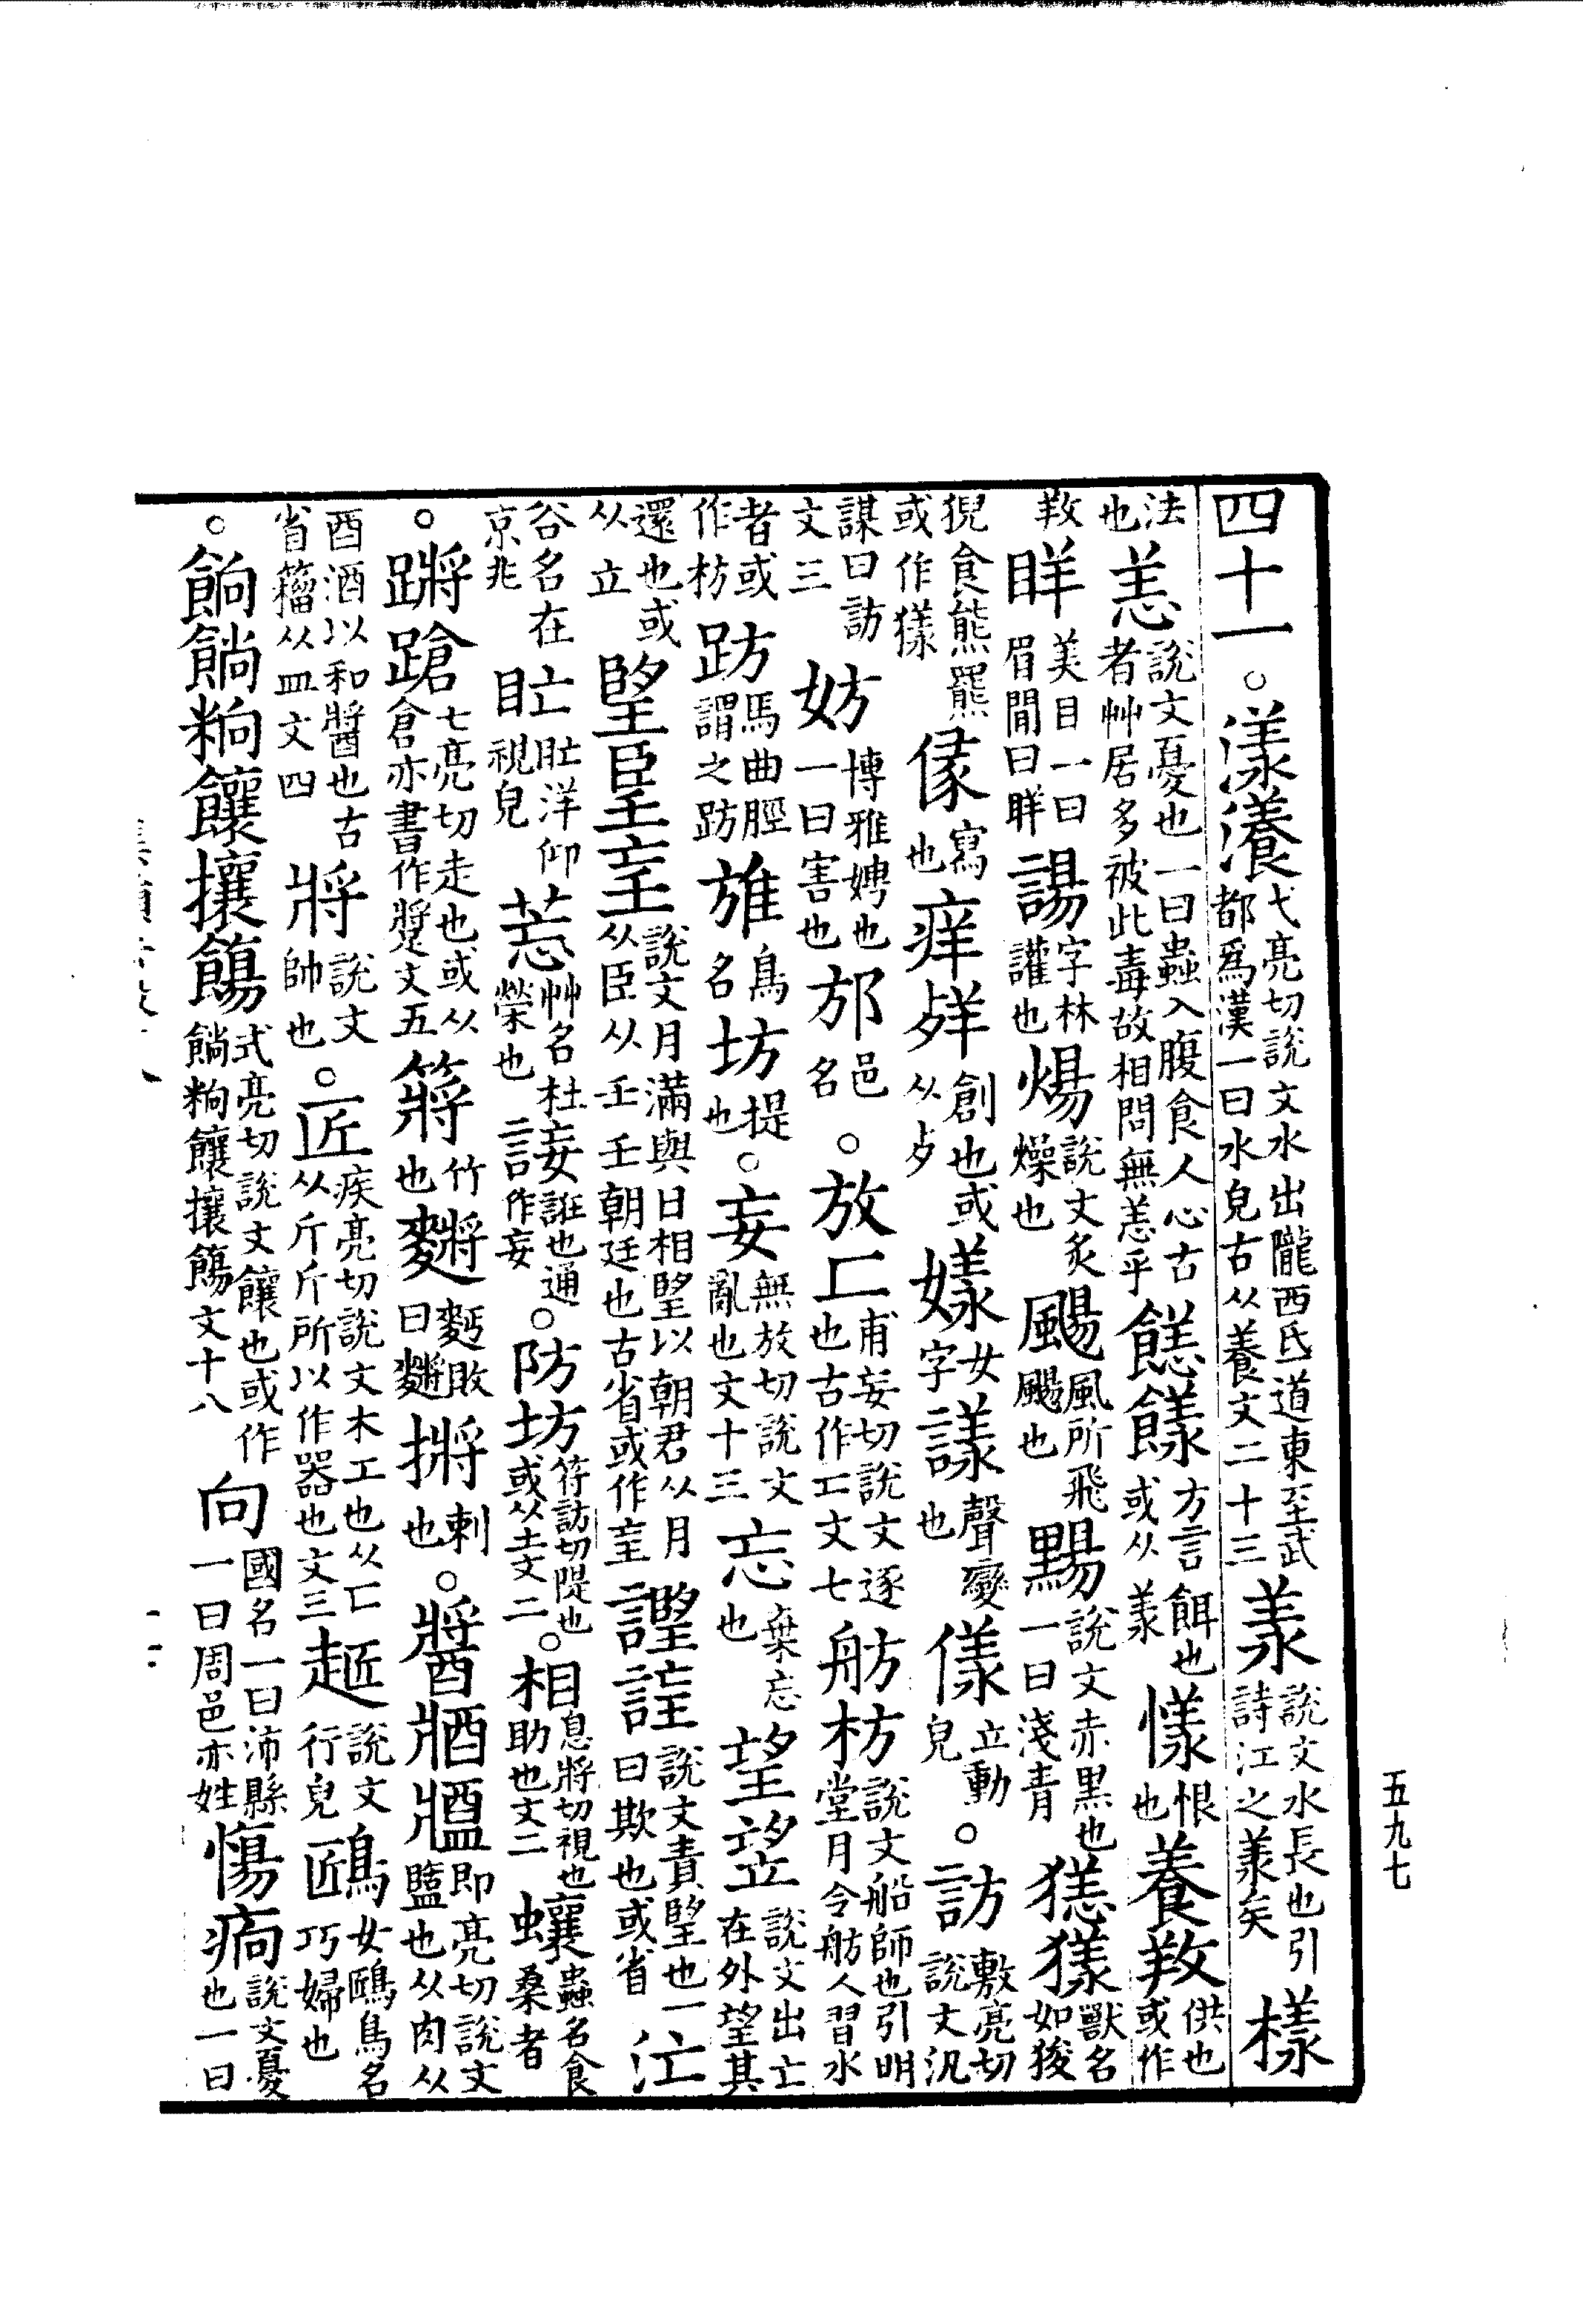 四十一。漾瀁弋亮切說文水出隴西氐道東至武都爲漢一曰水皃古从養文二十三羕說文水長也引詩江之羕矣樣
法也恙說文憂也一曰蟲入腹食人心古者艸居多被此毒故相問無恙乎方言餌也或从羕懩恨也養羐供也或作
羐眻美目一曰眉閒曰眻諹字林讙也煬說文炙燥也颺風所飛颺也說文赤黑也一曰淺青獸名如狻
猊食熊羆或作寫也痒創也或从歺女字聲變也立動皃。訪敷亮切說文汎
謀曰訪文三妨博雅娉也一曰害也邡邑名。放匸甫妄切說文逐也古作匸文七舫枋說文船師也引明堂月令舫人習水
者或作枋趽馬曲脛謂之趽鳥名坊堤也。妄無放切說文亂也文十三忘棄忘也望說文出亡在外望其
還也或从立朢說文月滿與日相朢以朝君从月从臣从壬壬朝廷也古省或作說文責朢也一曰欺也或省汒
谷名在京兆盳盳洋仰視皃𦬆艸名杜榮也誑也通作妄。防坊符訪切隄也或从土文二。相息將切視也助也文二蠰蟲名食桑者
。蹡蹌七亮切走也或从倉亦書作文五竹也麪敗曰刺也。醬即亮切說文盬也从肉从
酉酒以和醬也古省籀从皿文四將說文帥也。匠疾亮切說文木工也从匚从斤斤所以作器也文三說文行皃女鴎鳥名巧婦也
。餉饟攘式亮切說文饟也或作饟攘文十八向國名一曰沛縣一曰周邑亦姓慯說文憂也一曰
五九七